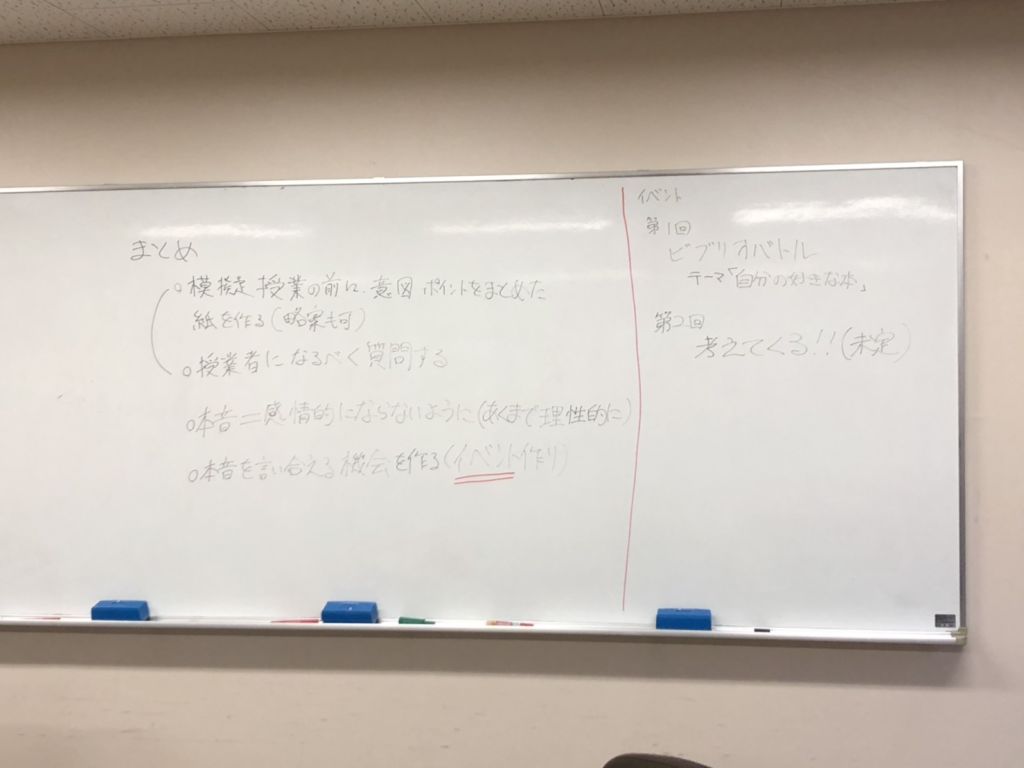 まとめ
○模擬授業の前に、意図 ポイントをまとめた
紙を作る(略案も可)
○授業者になるべく質問する
○本音＝感情的にならないように(あくまで理性的に)
○本音を言い合える機会を作る(イベント作り)
イベント
第1回
ビブリオバトル
テーマ「自分の好きな本」
第2回
考えてくる!!(未定)